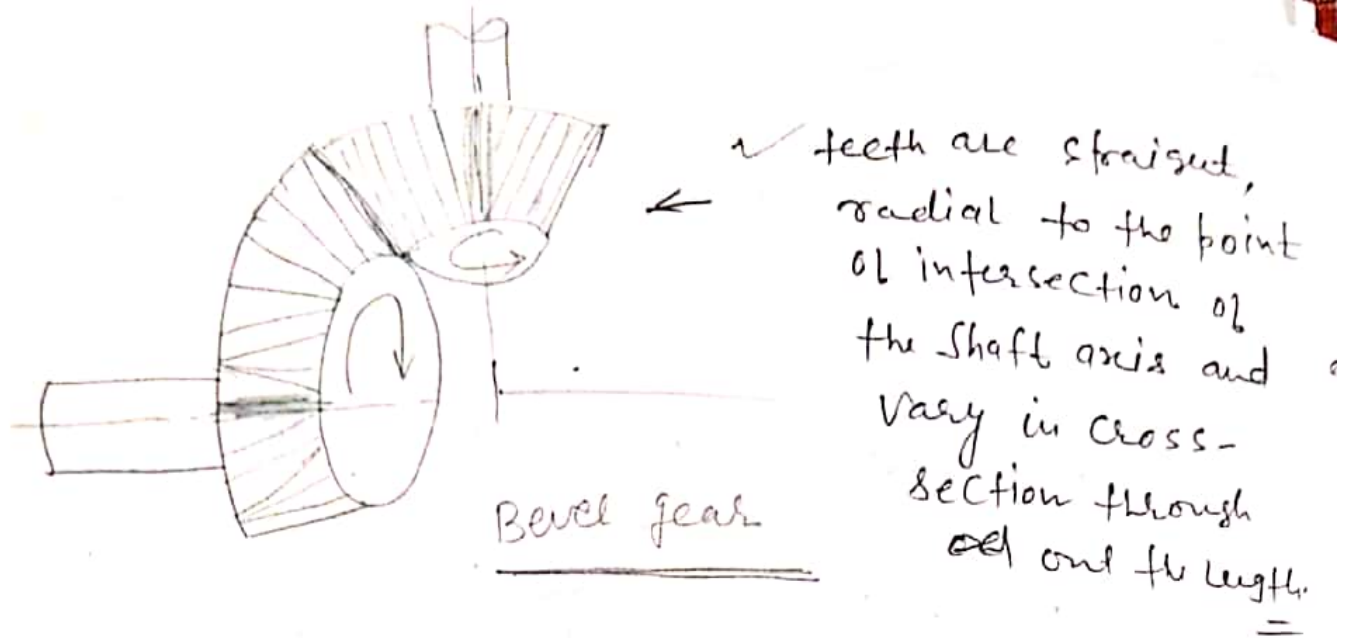 ✓ teeth are straigut,
radial to the point
of intersection of
the shaft axis and
vary in cross-
section through
out the length.
Bevel gear